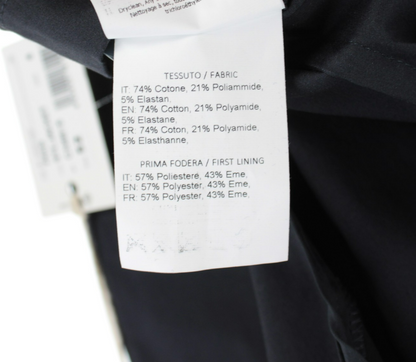 Dryclean, Any
Nettoyage à sec,
TESSUTO / FABRIC
IT: 74% Cotone, 21% Poliammide,
5% Elastan,
EN: 74% Cotton, 21% Polyamide,
5% Elastane,
FR: 74% Coton, 21% Polyamide,
5% Elasthanne,
PRIMA FODERA / FIRST LINING
IT: 57% Poliestere, 43% Eme,
EN: 57% Polyester, 43% Eme,
FR: 57% Polyester, 43% Eme,